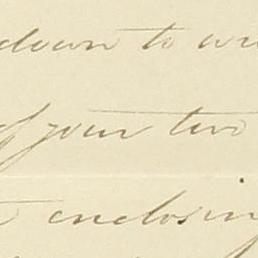 down to wri
of your two
enclosing